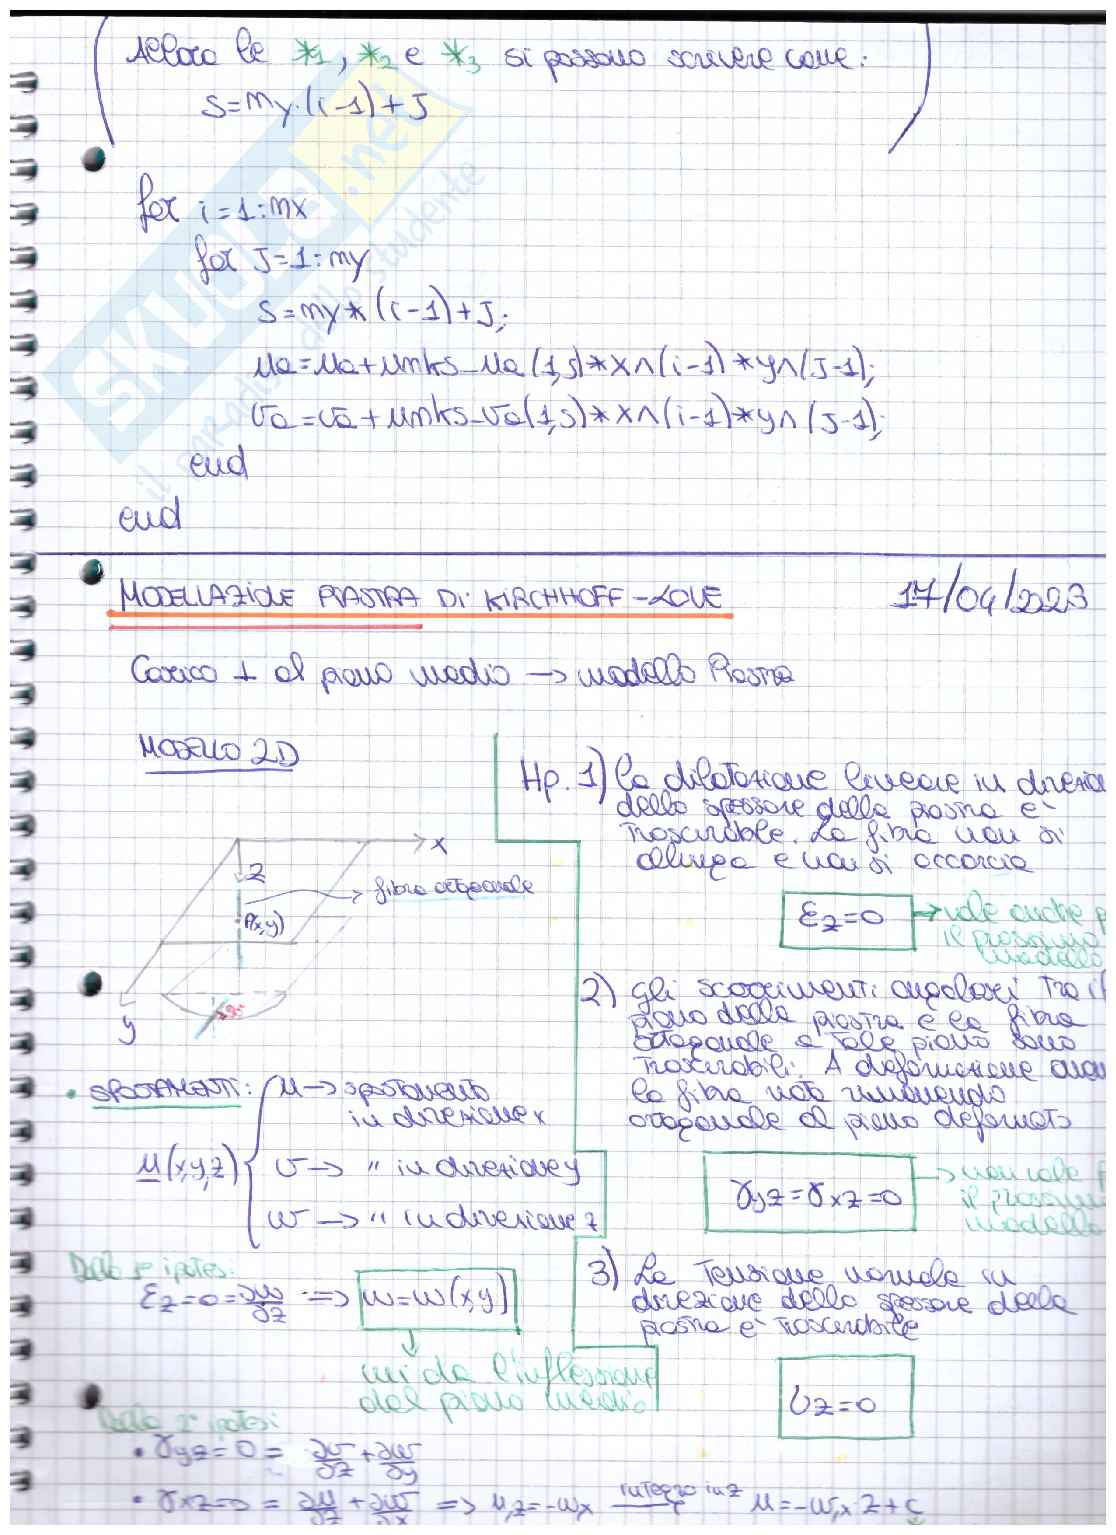 Allora le *1, *2 e *3 si possono scrivere come:
S=my·(i-1)+J
for i=1:mx
for J=1:my
S=my*(i-1)+J;
ua=ua+umks_ua(1,s)*x^(i-1)*y^(J-1);
va=va+umks_va(1,s)*x^(i-1)*y^(J-1);
end
end
SKUOLA.net
il paradiso dello studente
MODELLAZIONE PIASTRA DI KIRCHHOFF-LOVE 17/04/2023
Carico ⊥ al piano medio → modello Piastra
MODELLO 2D
x
z
fibra ortogonale
P(x,y)
90°
y
Hp. 1) la dilatazione lineare in direzio
dello spessore della piastra è
trascurabile. La fibra non si
allunga e non si accorcia
εz=0 → vale anche p
il prossimo
modello
2) gli scorrimenti angolari tra il
piano della piastra e la fibra
ortogonale a tale piano sono
trascurabili. A deformazione avv
la fibra nota rimanendo
ortogonale al piano deformato
γyz=γxz=0 → non vale p
il prossimo
modello
3) La tensione normale in
direzione dello spessore della
piastra è trascurabile
σz=0
• SPOSTAMENTI:
u(x,y,z)
u → spostamento
in direzione x
v → " in direzione y
w → " in direzione z
Dalla 1ª ipotesi:
εz=0=∂w/∂z ⇒ w=w(x,y)
↓
mi da l'inflessione
del piano medio
Dalla 2ª ipotesi
• γyz=0= ∂v/∂z+∂w/∂y
• γxz=0= ∂u/∂z+∂w/∂x ⇒ u,z=-w,x integro in z → u=-w,x·z+c